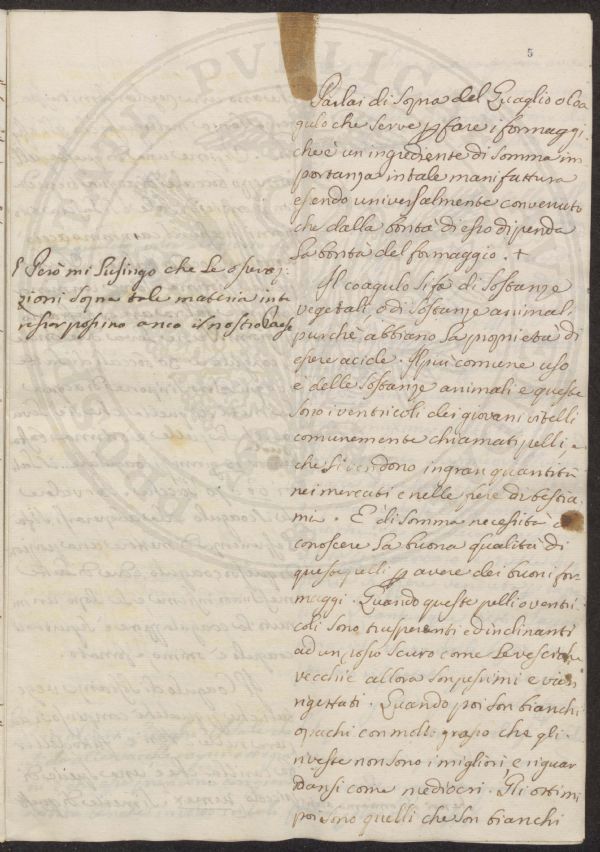 5
Parlai di sopra del Quaglio o Coa
gulo che serve p fare i formaggi,
che è un ingrediente di somma im
portanza in tale manifattura
essendo universalmente convenuto
che dalla bontà di esso dipenda
la bontà del formaggio. +
Però mi lusingo che le osserva
zioni sopra tale materia inte
ressar possino anco il nostro Paese
Il coagulo si fà di sostanze
vegetali, o di sostanze animali
purchè abbiano la proprietà di
essere acide. Il più comune uso
è delle sostanze animali e queste
sono i ventricoli dei giovani vitelli
comunemente chiamati pelli,
che si vendono in gran quantità
nei mercati e nelle fiere di bestia
mi. E' di somma necessità il
conoscere la buona qualità di
queste pelli p avere dei buoni for
maggi. Quando queste pelli o ventri
coli sono trasparenti ed inclinanti
ad un rosso scuro come le vesciche
vecchie allora son pessimi e van
rigettati. Quando poi son bianchi
opachi con molto grasso che gli
investe non sono i migliori e riguar
dansi come mediocri. Gli ottimi
poi sono quelli che son bianchi